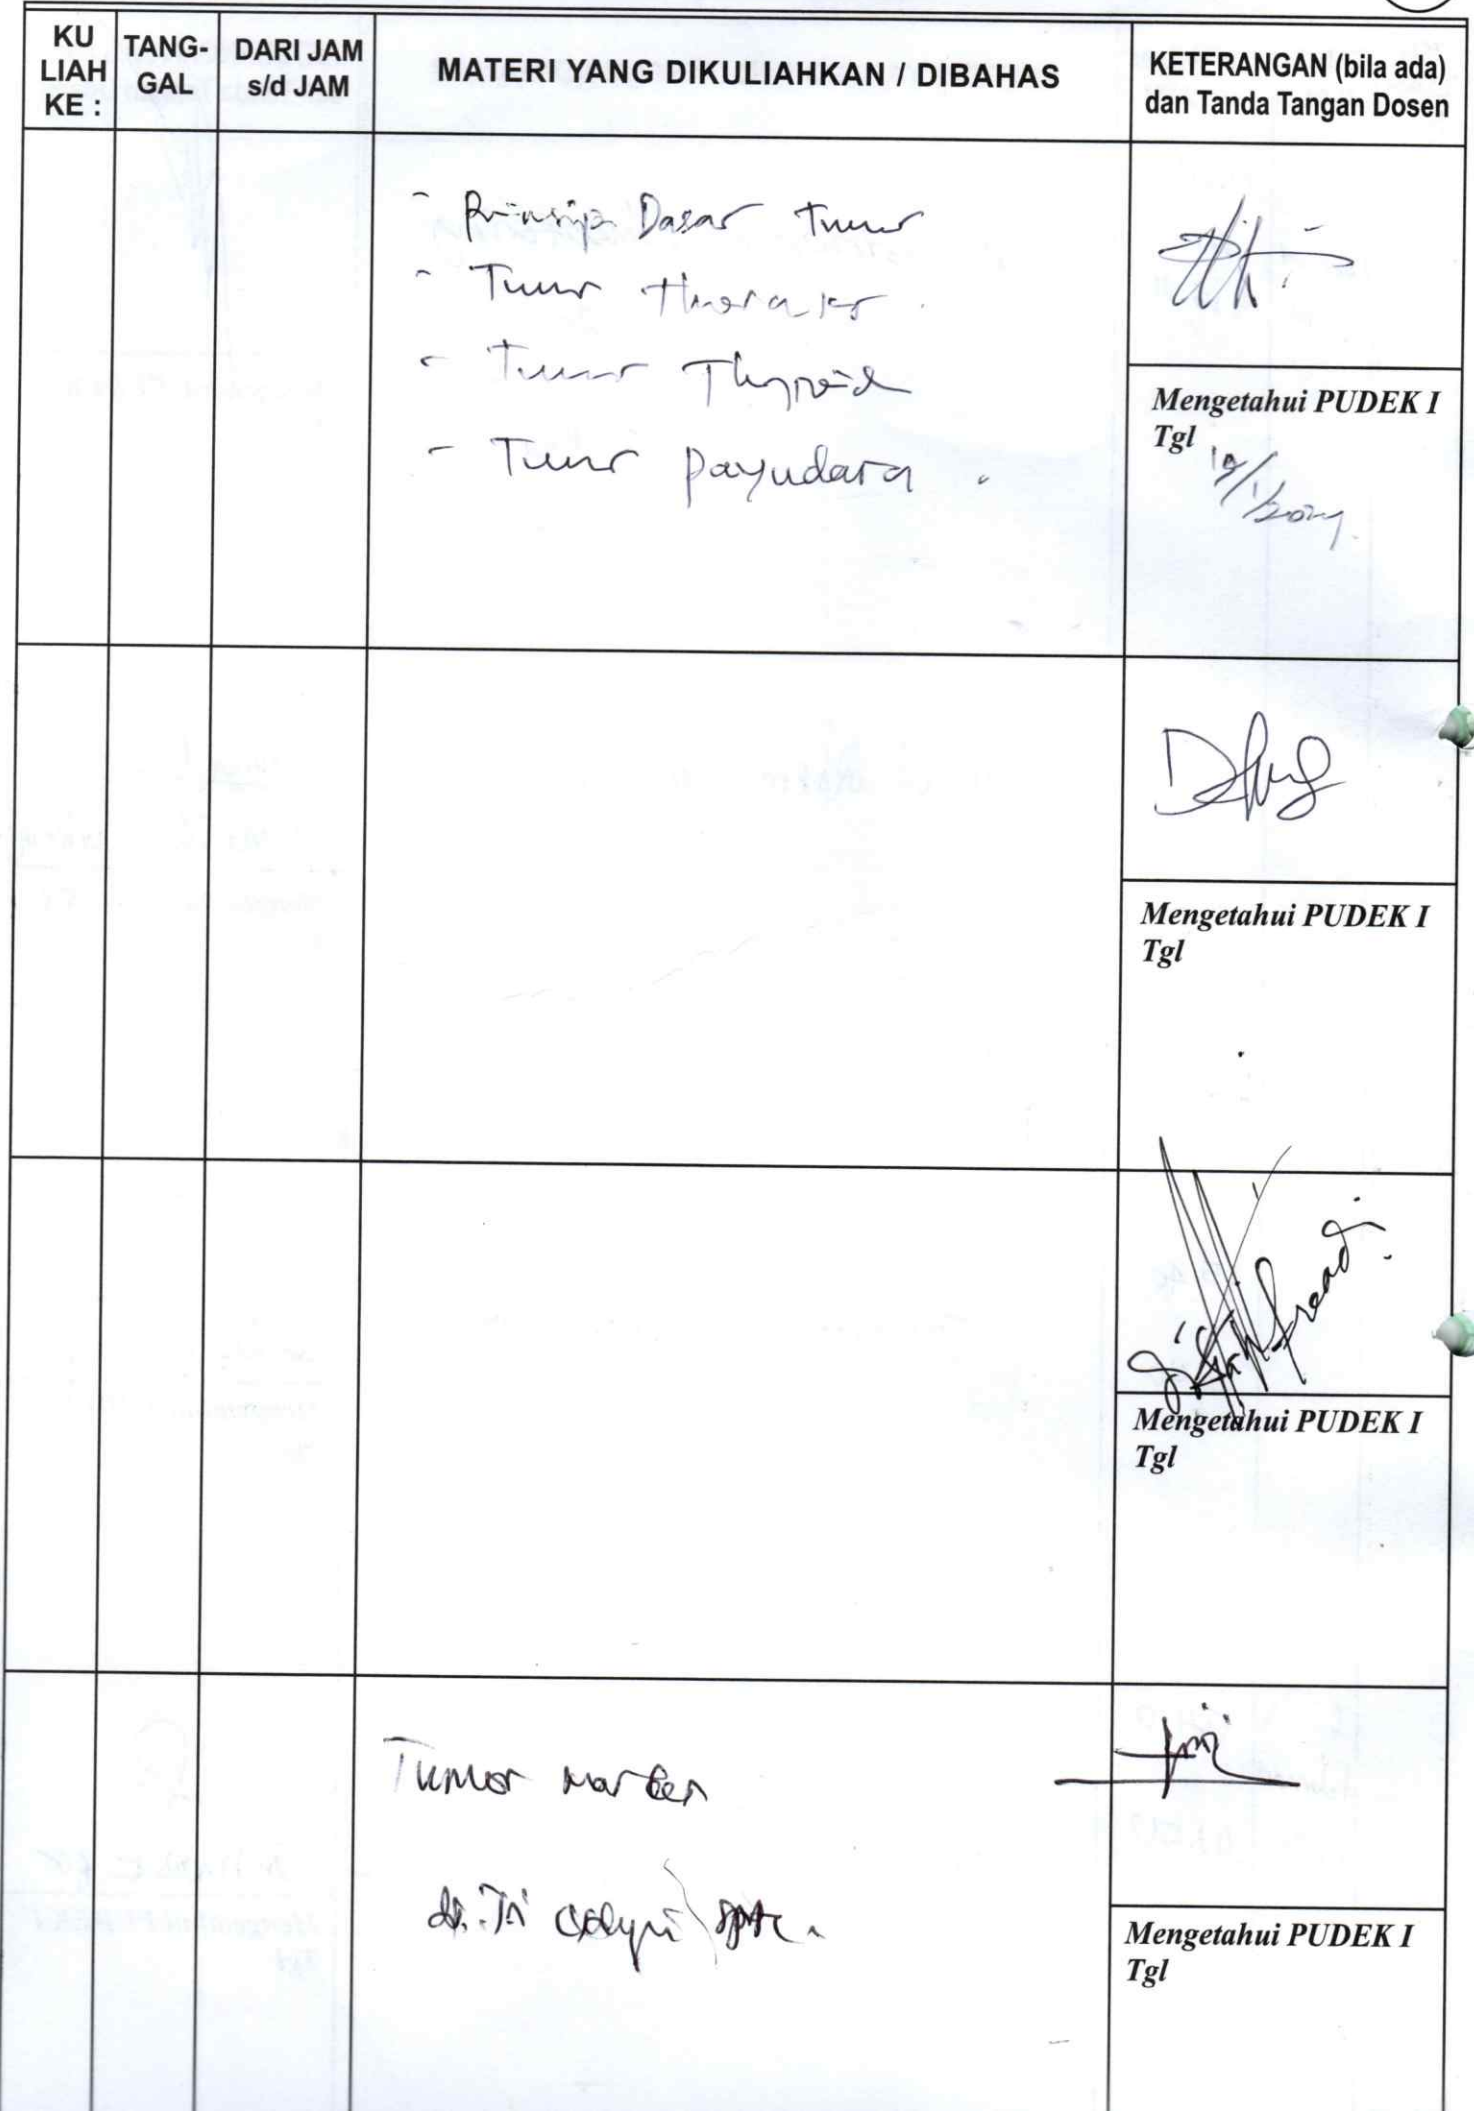 KU LIAH KE :
TANG- GAL
DARI JAM s/d JAM
MATERI YANG DIKULIAHKAN / DIBAHAS
KETERANGAN (bila ada) dan Tanda Tangan Dosen
- Prinsip Dasar Tumor
- Tumor Thoraks
- Tumor Thyroid
- Tumor payudara
Mengetahui PUDEK I
Tgl
Mengetahui PUDEK I
Tgl
Mengetahui PUDEK I
Tgl
Tumor marker
dr. Tri
Mengetahui PUDEK I
Tgl